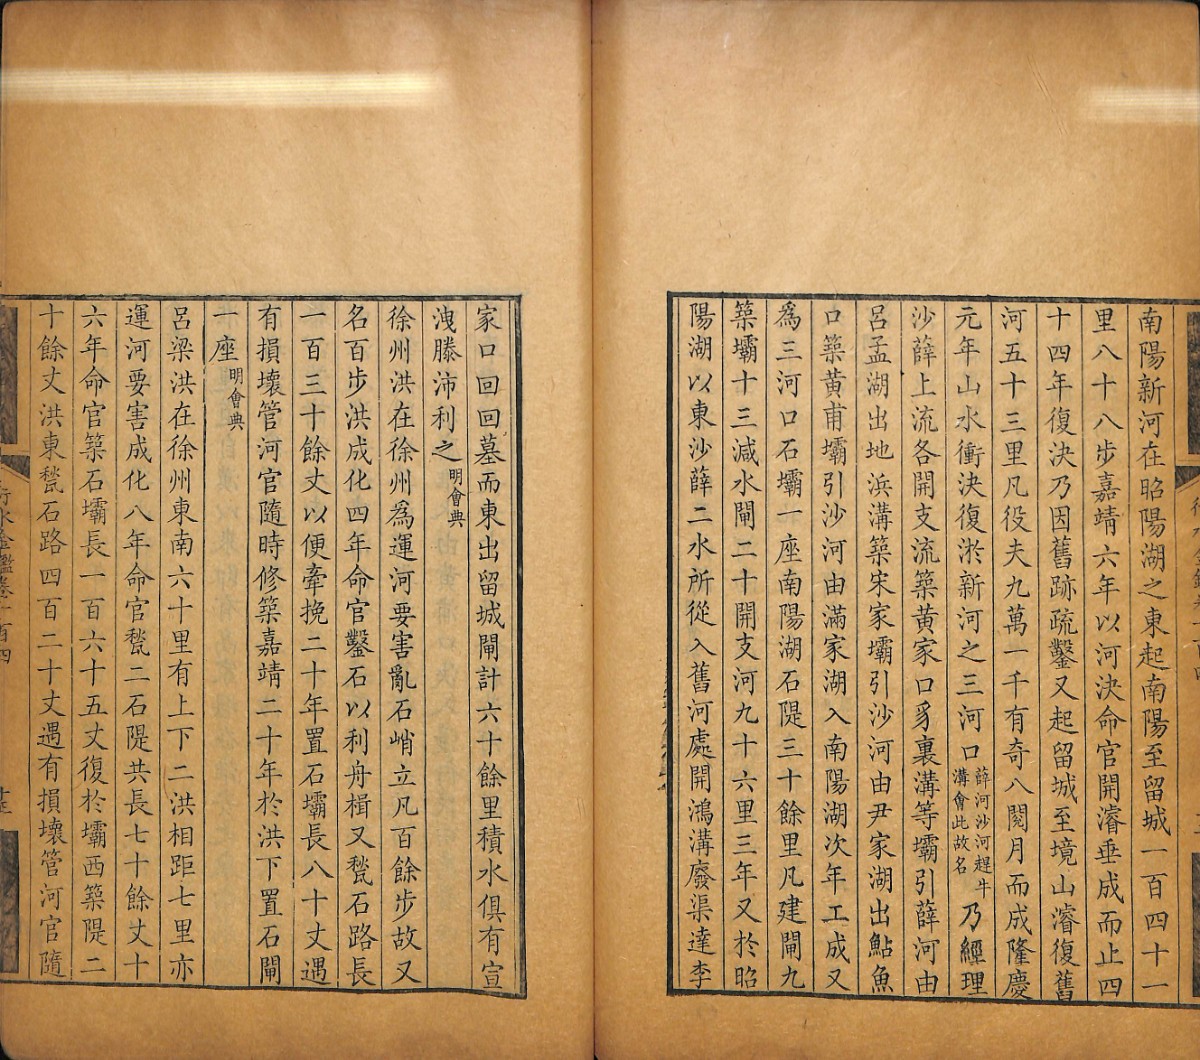 南陽新河在昭陽湖之東起南陽至留城一百四十一
里八十八步嘉靖六年以河決命官開濬垂成而止四
十四年復決乃因舊跡疏鑿又起留城至境山濬復舊
河五十三里凡役夫九萬一千有奇八閱月而成隆慶
元年山水衝決復淤新河之三河口薛河沙河趕牛溝會此故名乃經理
沙薛上流各開支流築黃家口豸裏溝等壩引薛河由
呂孟湖出地浜溝築宋家壩引沙河由尹家湖出鮎魚
口築黃甫壩引沙河由滿家湖入南陽湖次年工成又
為三河口石壩一座南陽湖石隄三十餘里凡建閘九
築壩十三減水閘二十開支河九十六里三年又於昭
陽湖以東沙薛二水所從入舊河處開鴻溝廢渠達李
家口回回墓而東出留城閘計六十餘里積水俱有宣
洩滕沛利之明會典
徐州洪在徐州為運河要害亂石峭立凡百餘步故又
名百步洪成化四年命官鑿石以利舟楫又甃石路長
一百三十餘丈以便牽挽二十年置石壩長八十丈遇
有損壞管河官隨時修築嘉靖二十年於洪下置石閘
一座明會典
呂梁洪在徐州東南六十里有上下二洪相距七里亦
運河要害成化八年命官甃二石隄共長七十餘丈十
六年命官築石壩長一百六十五丈復於壩西築隄二
十餘丈洪東甃石路四百二十丈遇有損壞管河官隨